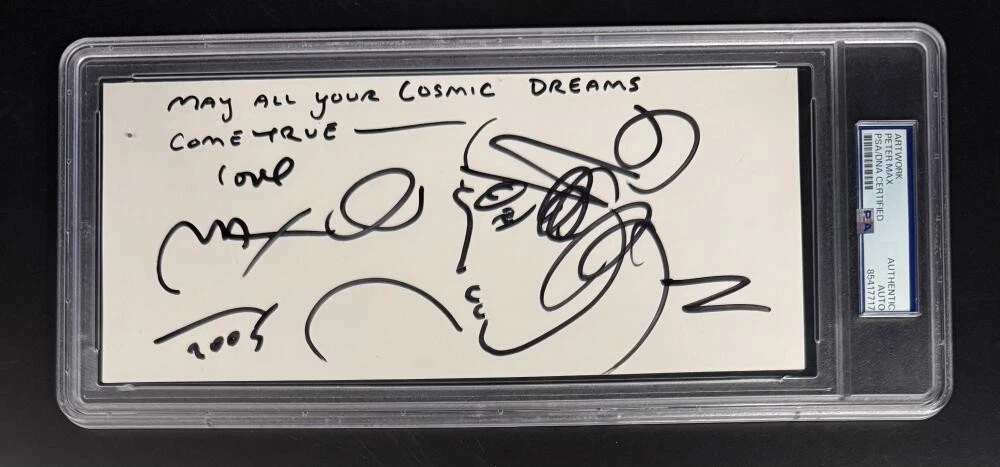 MAY ALL YOUR COSMIC DREAMS
COME TRUE
Love
MAX
2005
ARTWORK
PETER MAX
PSA/DNA CERTIFIED
PSA
AUTHENTIC
AUTO
85417717